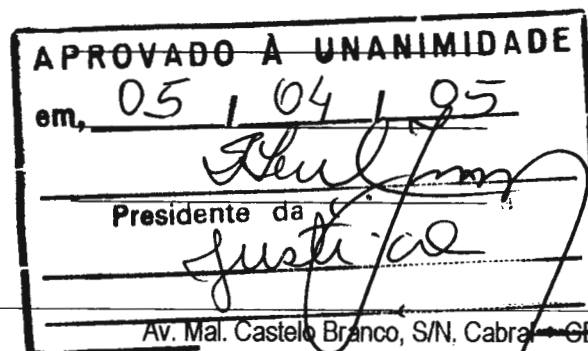 APROVADO À UNANIMIDADE
em, 05 / 04 / 95
Presidente da
Justiça
Av. Mal. Castelo Branco, S/N, Cabral